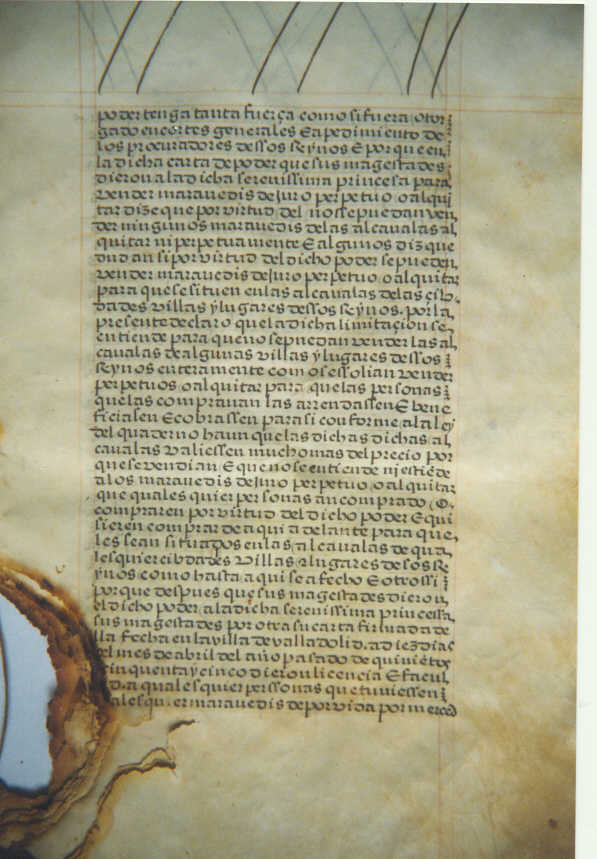 poder tenga tanta fuerça como si fuera otor
gado en cortes generales E a pedimiento de
los procuradores dessos rreynos E por que en
la dicha carta de poder que sus magestades
dieron a la dicha serenissima princesa para
vender maravedis de juro perpetuo o al qui
tar dize que por virtud del no se puedan ven
der ningunos maravedis de las alcavalas al
quitar ni perpetuamente E algunos diz que
dudan si por virtud del dicho poder se pueden
vender maravedis de juro perpetuo o al quitar
para que se situen en las alcavalas de las çib
dades villas y lugares dessos rreynos. por la
presente declaro que la dicha limitaçion se
entiende para que no se puedan vender las al
cavalas de algunas villas y lugares dessos
rreynos enteramente como se solian vender
perpetuos o al quitar para que las personas
que las compravan las arrendassen E bene
ficiasen E cobrassen para si conforme a la ley
del quaderno haun que las dichas dichas al
cavalas valiessen mucho mas del precio por
que se vendian E que no se entiende ni estiēde
a los maravedis de juro perpetuo o al quitar
que quales quier personas an comprado o
compraren por virtud del dicho poder E qui
sieren comprar de aqui adelante para que
les sean situados en las alcavalas de qua
lesquier cibdades villas E lugares desos rre
ynos como hasta aqui se a fecho E otrossi
por que despues que sus magestades dieron
el dicho poder a la dicha serenissima princessa
sus magestades por otra su carta firmada de
lla fecha en la villa de valladolid. a diez dias
del mes de abril del año pasado de quiniētos
cinquenta y cinco dieron licencia E facul
d. a qualesquier perssonas que tuviessen
alesquier maravedis de por vida por merced